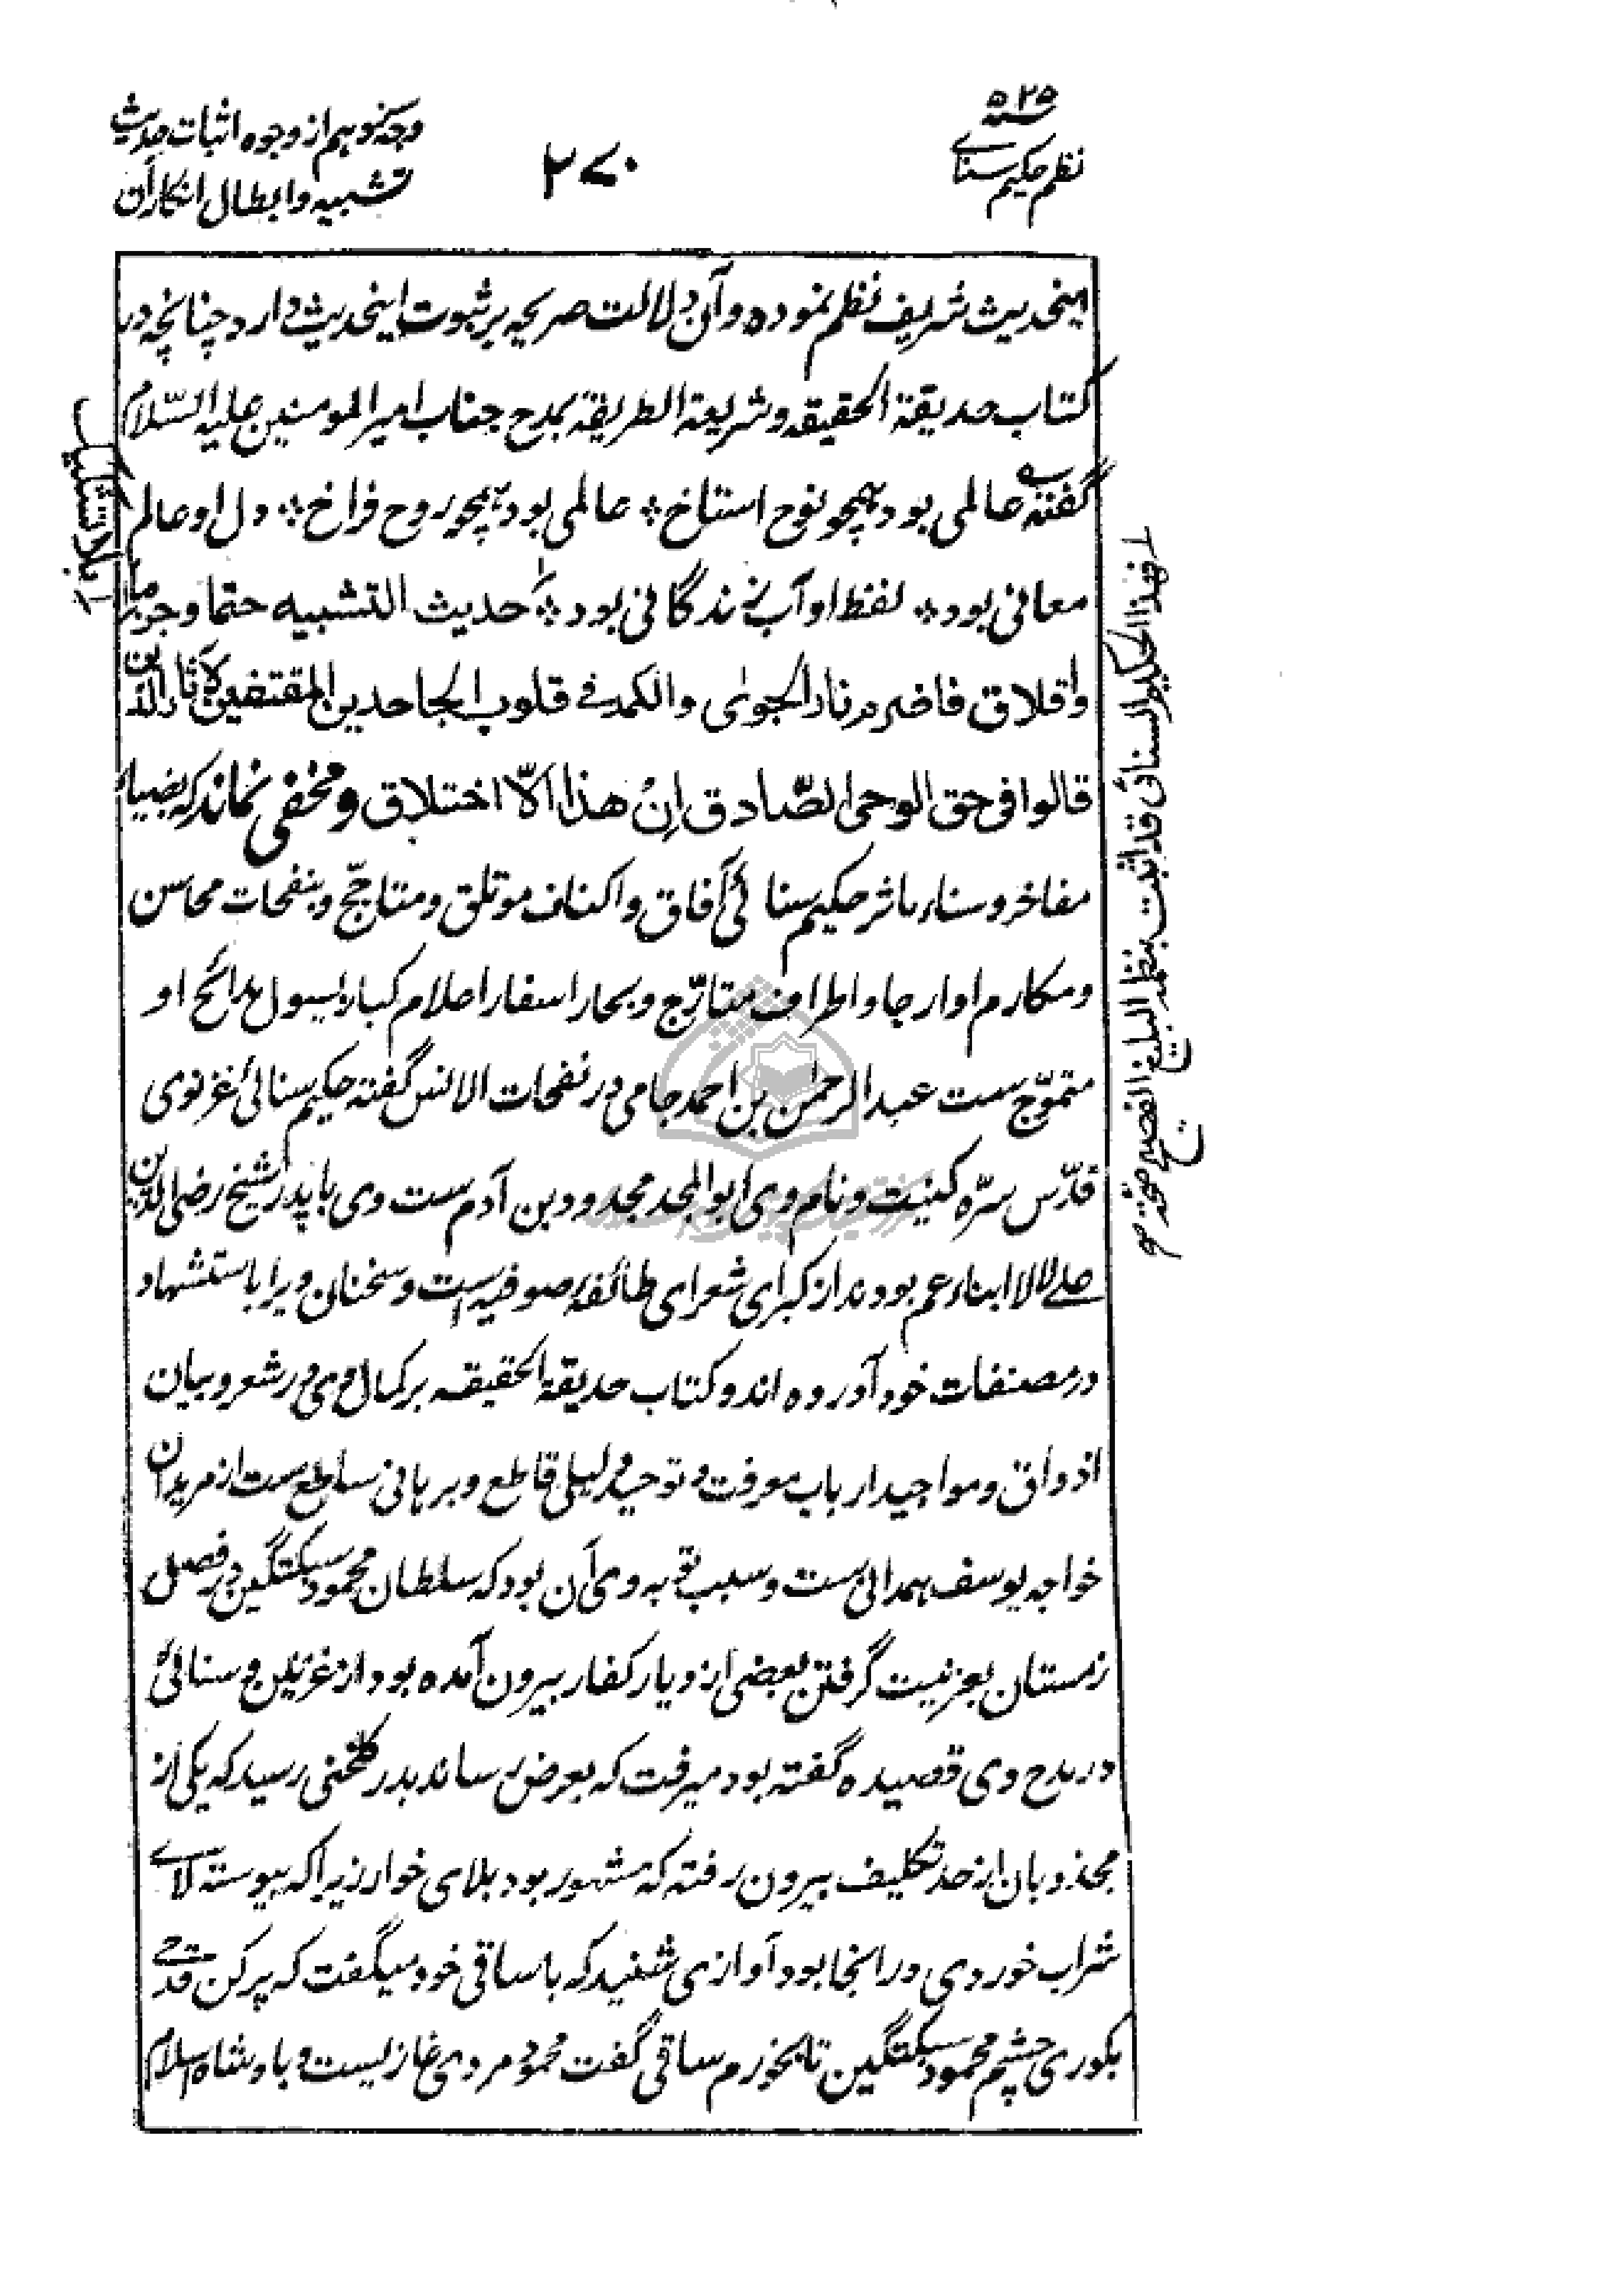 ۵۲۵ سنه
نظم حکیم سنائے
۲۷۰
وجه نوهم از وجوه اثبات حدیث
تشبیه و ابطال انکار آن
اینحدیث شریف نظم نموده و آن دلالت صریحه بر ثبوت اینحدیث دارد چنانچه در
کتاب حدیقة الحقیقه و شریعة الطریقة بمدح جناب امیر المومنین علیه السّلام
گفته عالمی بود همچو نوح استاخ ※ عالمی بود همچو روح فراخ ※ دل او عالم
معانی بود ※ لفظ او آب زندگانی بود ※ حدیث التشبیه حتما وجزما
واقلاق فاضرم نار الجوی والکمد فے قلوب الجاحدین المقتفین لآثار الذین
قالوا فی حق الوحی الصّادق اِنْ هذا الّا اختلاق و مخفی نماند که بضیاء
مفاخر و سناء ماثر حکیم سنائی آفاق و اکناف موتلق و متاجّج و بنفحات محاسن
و مکارم او ارجا و اطراف متارّج و بحار اسفار اعلام کبار بسیول مدائح او
متموّج ست عبد الرحمن بن احمد جامی در نفحات الانس گفته حکیم سنائی غزنوی
قدّس سرّه کنیت و نام وی ابو المجد مجدود بن آدم ست وی با پدر شیخ رضی الدین
علے لالا ابناء عم بودند از کبرای شعرای طائفهٔ صوفیه است و سخنان ویرا باستشهاد
در مصنفات خود آورده اند و کتاب حدیقة الحقیقه بر کمال وی در شعر و بیان
اذواق و مواجید ارباب معرفت و توحید دلیلی قاطع و برهانی ساطع ست از مریدان
خواجه یوسف همدانی ست و سبب توبه وی آن بود که سلطان محمود سبکتگین در فصل
زمستان بعزیمت گرفتن بعضی از دیار کفار بیرون آمده بود از غزنین و سنائی
در مدح وی قصیده گفته بود میرفت که بعرض رساند بدر گلخنی رسید که یکی از
مجذوبان از حد تکلیف بیرون رفته که مشهور بود بلای خوار زیرا که پیوسته لاے
شراب خوردی در انجا بود آوازی شنید که با ساقی خود میگفت که پر کن قدحے
بکوری چشم محمود سبکتگین تا بخورم ساقی گفت محمود مردی غازیست و بادشاه اسلام
فهذا الحکیم السنائی قد اثبت بنظمه البلیغ الفصیح
بلا تشکیک